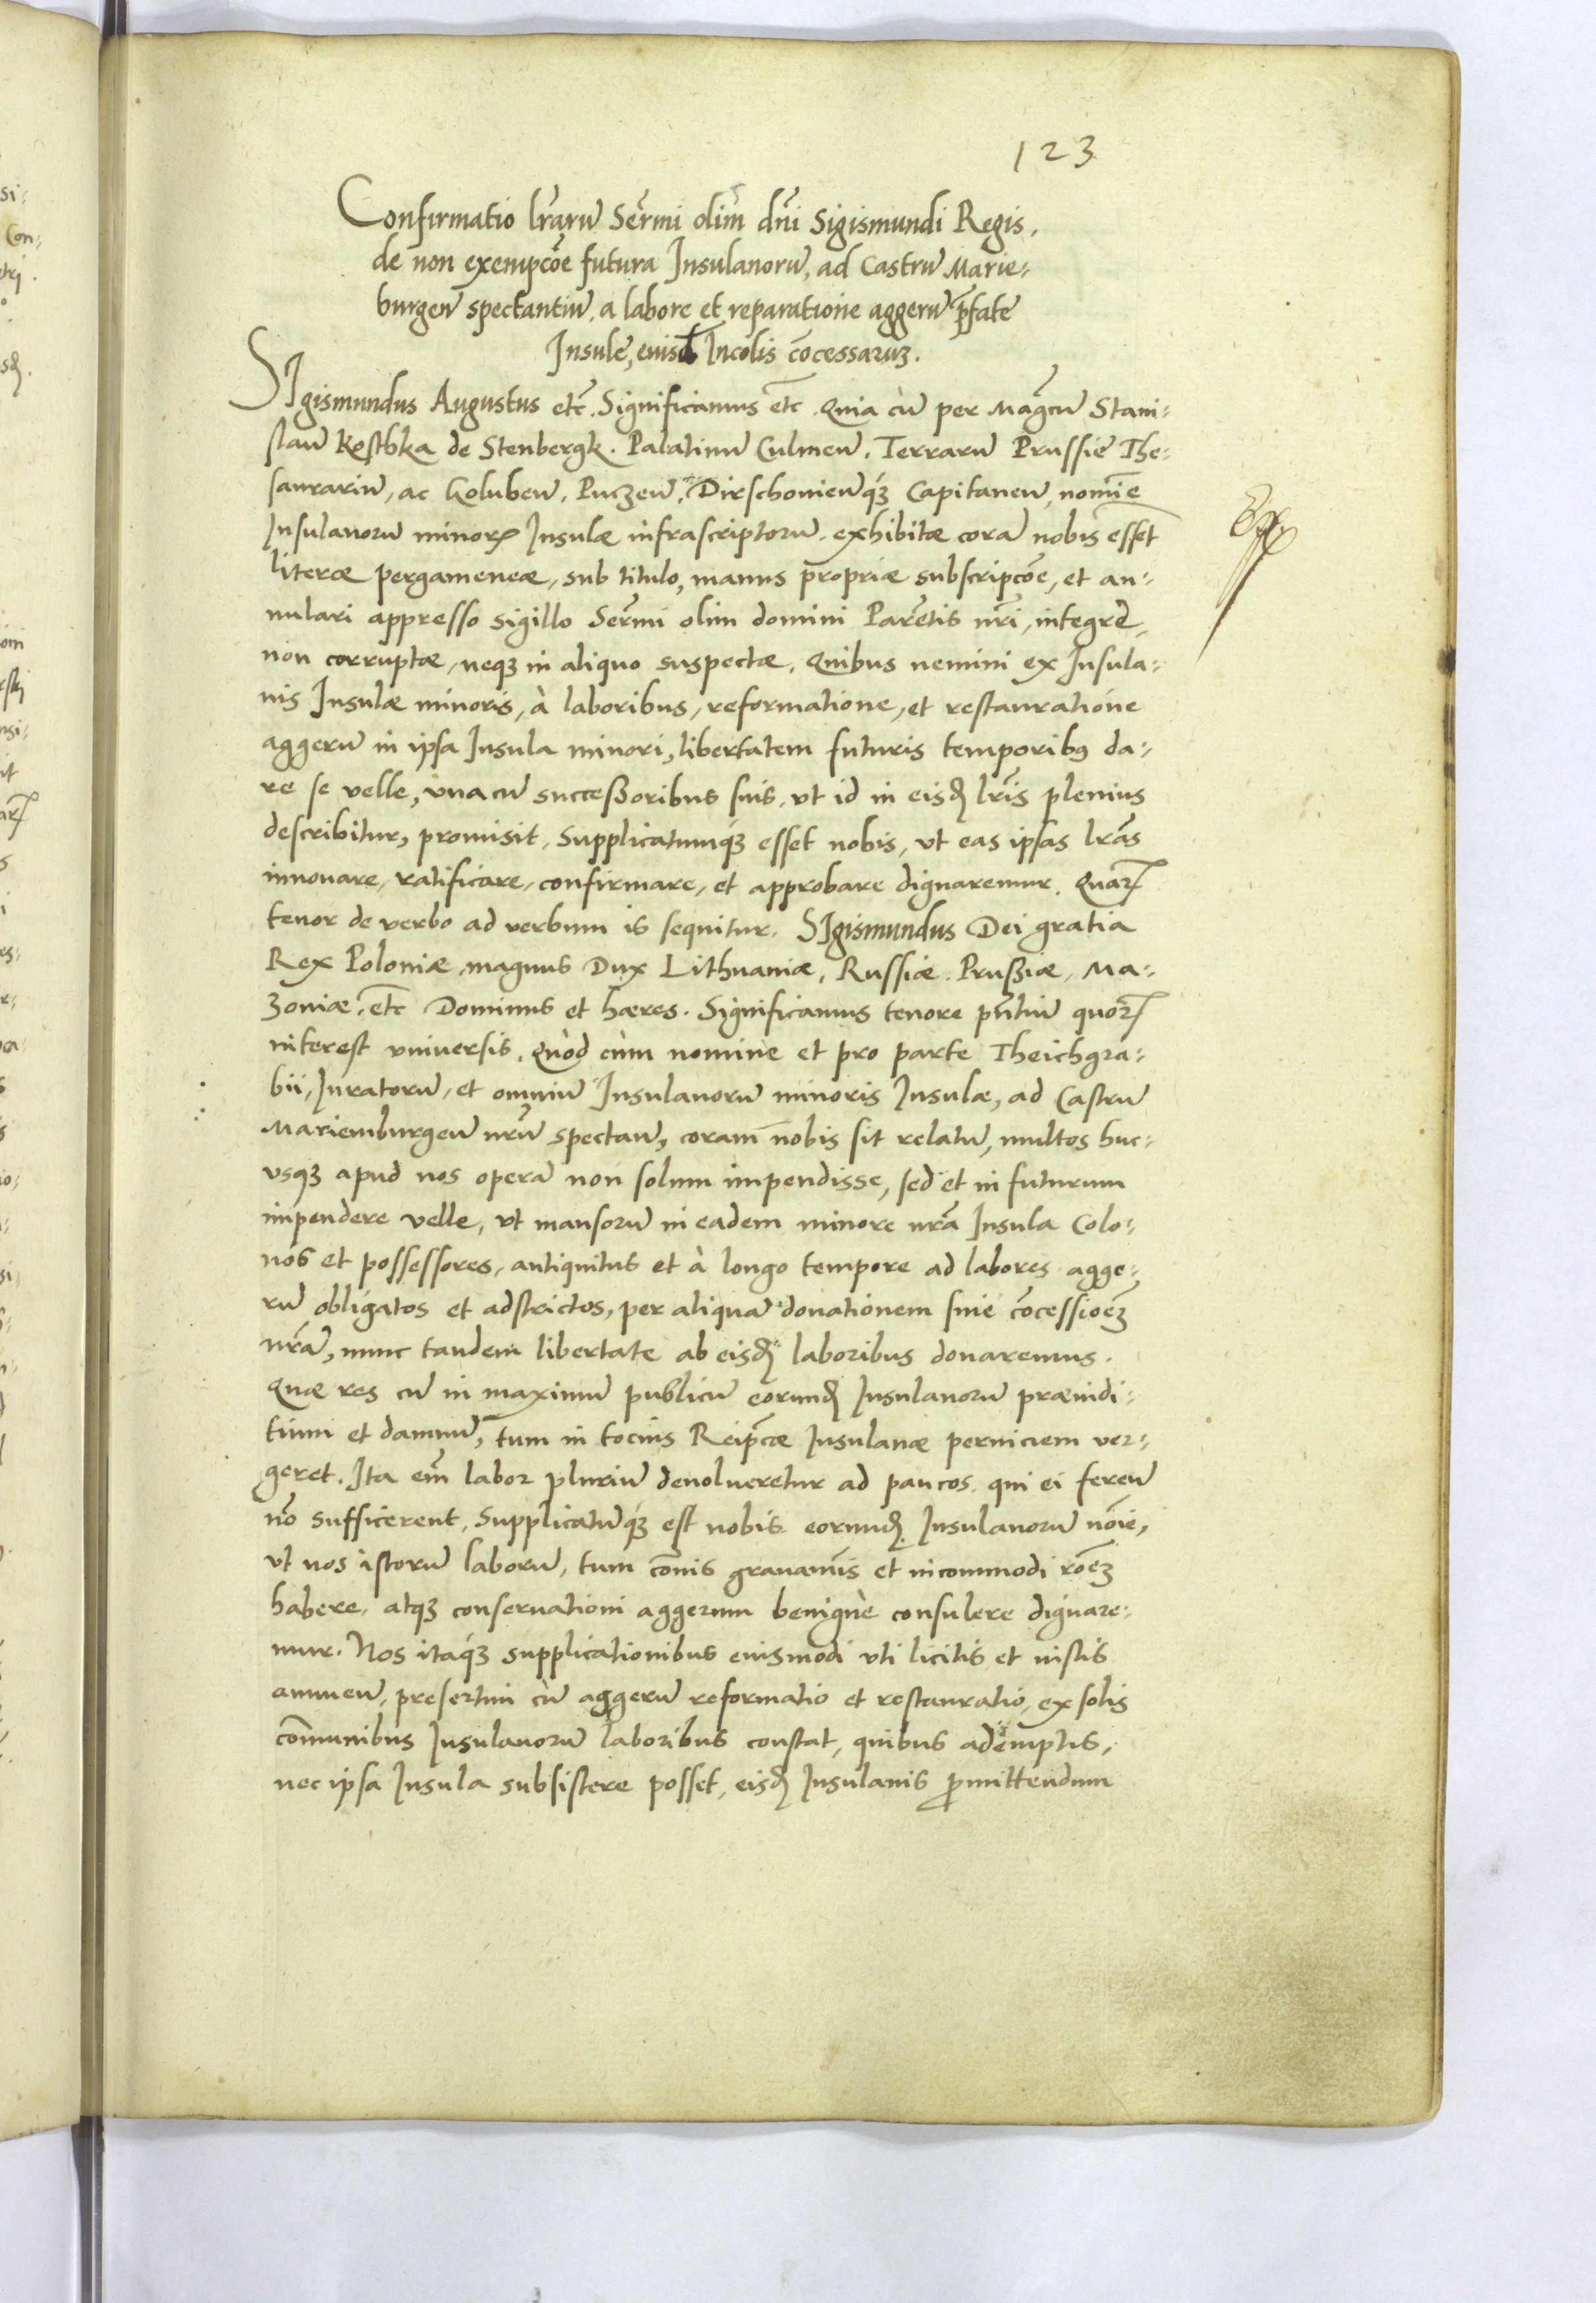 123
Confirmatio lr̃arũ Serm̃i olim dñi Sigismundi Regis,
de non exempcõe futura Insulanorũ, ad Castrũ Marie-
burgeñ spectantiũ, a labore et reparatione aggerũ p̃fate
Insule, eiusd Incolis cõcessaruʒ.
SIgismundus Augustus etc̃. Significamus etc̃. Quia cù per Mag̃cũ Stani-
slaũ Kostbka de Stenbergk. Palatinũ Culmeñ. Terrarũ Prussię The-
saurariũ, ac Golubeñ, Puczeñ, Dirschouieñq́ʒ Capitaneũ, nomine
Insulanorũ minorꝝ Insulæ infrascriptorũ, exhibitæ corã nobis esset
literæ pergameneæ, sub titulo, manus propriæ subscripcõe, et an-
nulari appresso sigillo Serm̃i olim domini Parẽtis nr̃i, integrę,
non corruptæ, neqʒ in aliquo suspectæ, Quibus nemini ex Insula-
nis Insulæ minoris, à laboribus, reformatione, et restauratione
aggerũ in ipsa Insula minori, libertatem futuris temporibꝰ da-
re se velle, vna cũ successoribus suis, vt id in eisdꝭ lr̃is plenius
describitur, promisit, Supplicatumq́ʒ esset nobis, vt eas ipsas lr̃as
innouare, ratificare, confirmare, et approbare dignaremur. Quarꝝ
tenor de verbo ad verbum is sequitur. SIgismundus Dei gratia
Rex Poloniæ, magnus Dux Lithuaniæ, Russiæ. Prussiæ, Ma-
zoniæ, etc̃ Dominus et hæres. Significamus tenore pñtiũ quorꝝ
interest vniuersis, Quòd cùm nomine et pro parte Theichgra-
bii, Iuratorũ, et omniũ Insulanorũ minoris Insulæ, ad Castrũ
Mariemburgeñ nr̃ũ spectañ, coram nobis sit relatũ, multos huc-
vsqʒ apud nos operã non solum impendisse, sed et in futurum
impendere velle, vt mansorũ in eadem minore nr̃a Insula Colo-
nos et possessores, antiquitus et à longo tempore ad labores agge-
rũ obligatos et adstrictos, per aliquã donationem siue cõcessioẽʒ
nr̃ã, nunc tandem libertate ab eisdꝭ laboribus donaremus.
Quæ res cũ in maximũ publicũ eorundꝭ Insulanorũ præiudi-
tium et damnũ, tum in tocius Reip̃cæ Insulanæ perniciem ver-
geret. Ita em̃ labor pluriũ deuolueretur ad paucos, qui ei fereñ
nõ sufficerent, Supplicatũq́ʒ est nobis eorundꝭ Insulanorũ nõie,
vt nos istorũ laborũ, tum cõnis grauaminis et incommodi rõeʒ
habere, atqʒ conseruationi aggerum benignè consulere dignare-
mur. Nos itaq́ʒ supplicationibus euismodi vti licitis et iustis
annueñ, presertim cù aggerũ reformatio et restauratio, ex solis
com̃unibus Insulanorũ laboribus constat, quibus ademptis,
nec ipsa Insula subsistere posset, eisdꝭ Insulanis ꝓmittendum